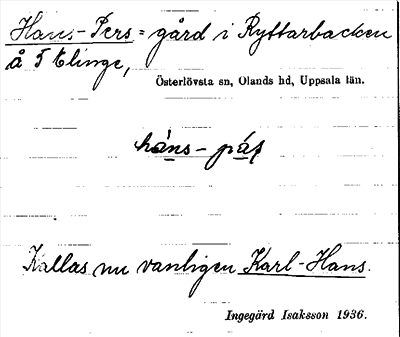 Hans-Pers = gård i Ryttarbacken
å F Elinge,
Österlövsta sn, Olands hd, Uppsala län.
Kallas nu vanligen Karl-Hans.
Ingegärd Isaksson 1936.